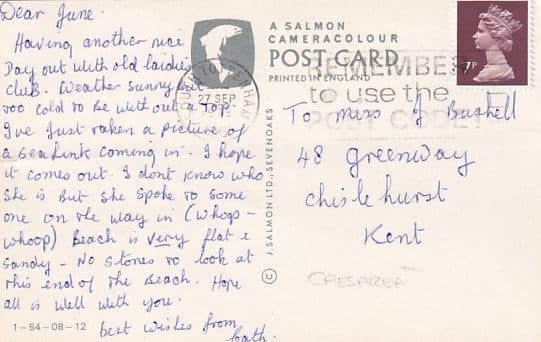 Dear June.
Having another nice
Day out with old laidies
club. Weather sunny but
too cold to be without a Top.
I've Just taken a picture of
a sealink coming in. I hope
it comes out. I dont know who
she is But she spoke to some
one on the way in (whoop-
whoop) Beach is very flat &
sandy - No stones to look at
this end of the Beach. Hope
all is well with you.
1-54-08-12 best wishes from
Cath.
A SALMON
CAMERACOLOUR
POST CARD
PRINTED IN ENGLAND
27 SEP
REMEMBER
to use the
POST CODE
7P
To Miss J Bushell
48 Greenway
Chislehurst
Kent
© J. SALMON LTD., SEVENOAKS
CAESAREA